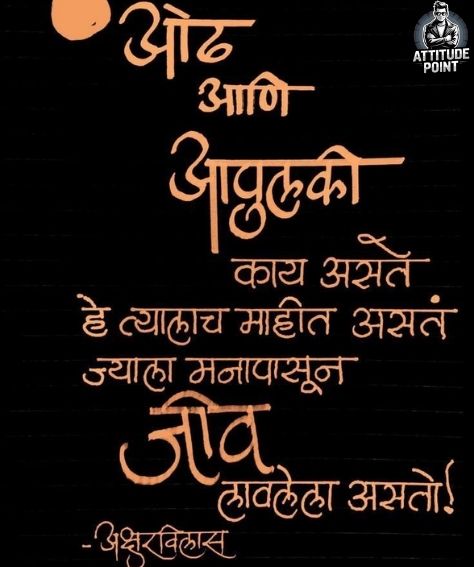 ATTITUDE
POINT
ओढ
आणि
आपुलकी
काय असते
हे त्यालाच माहीत असतं
ज्याला मनापासून
जीव
लावलेला असतो!
-अक्षरविलास